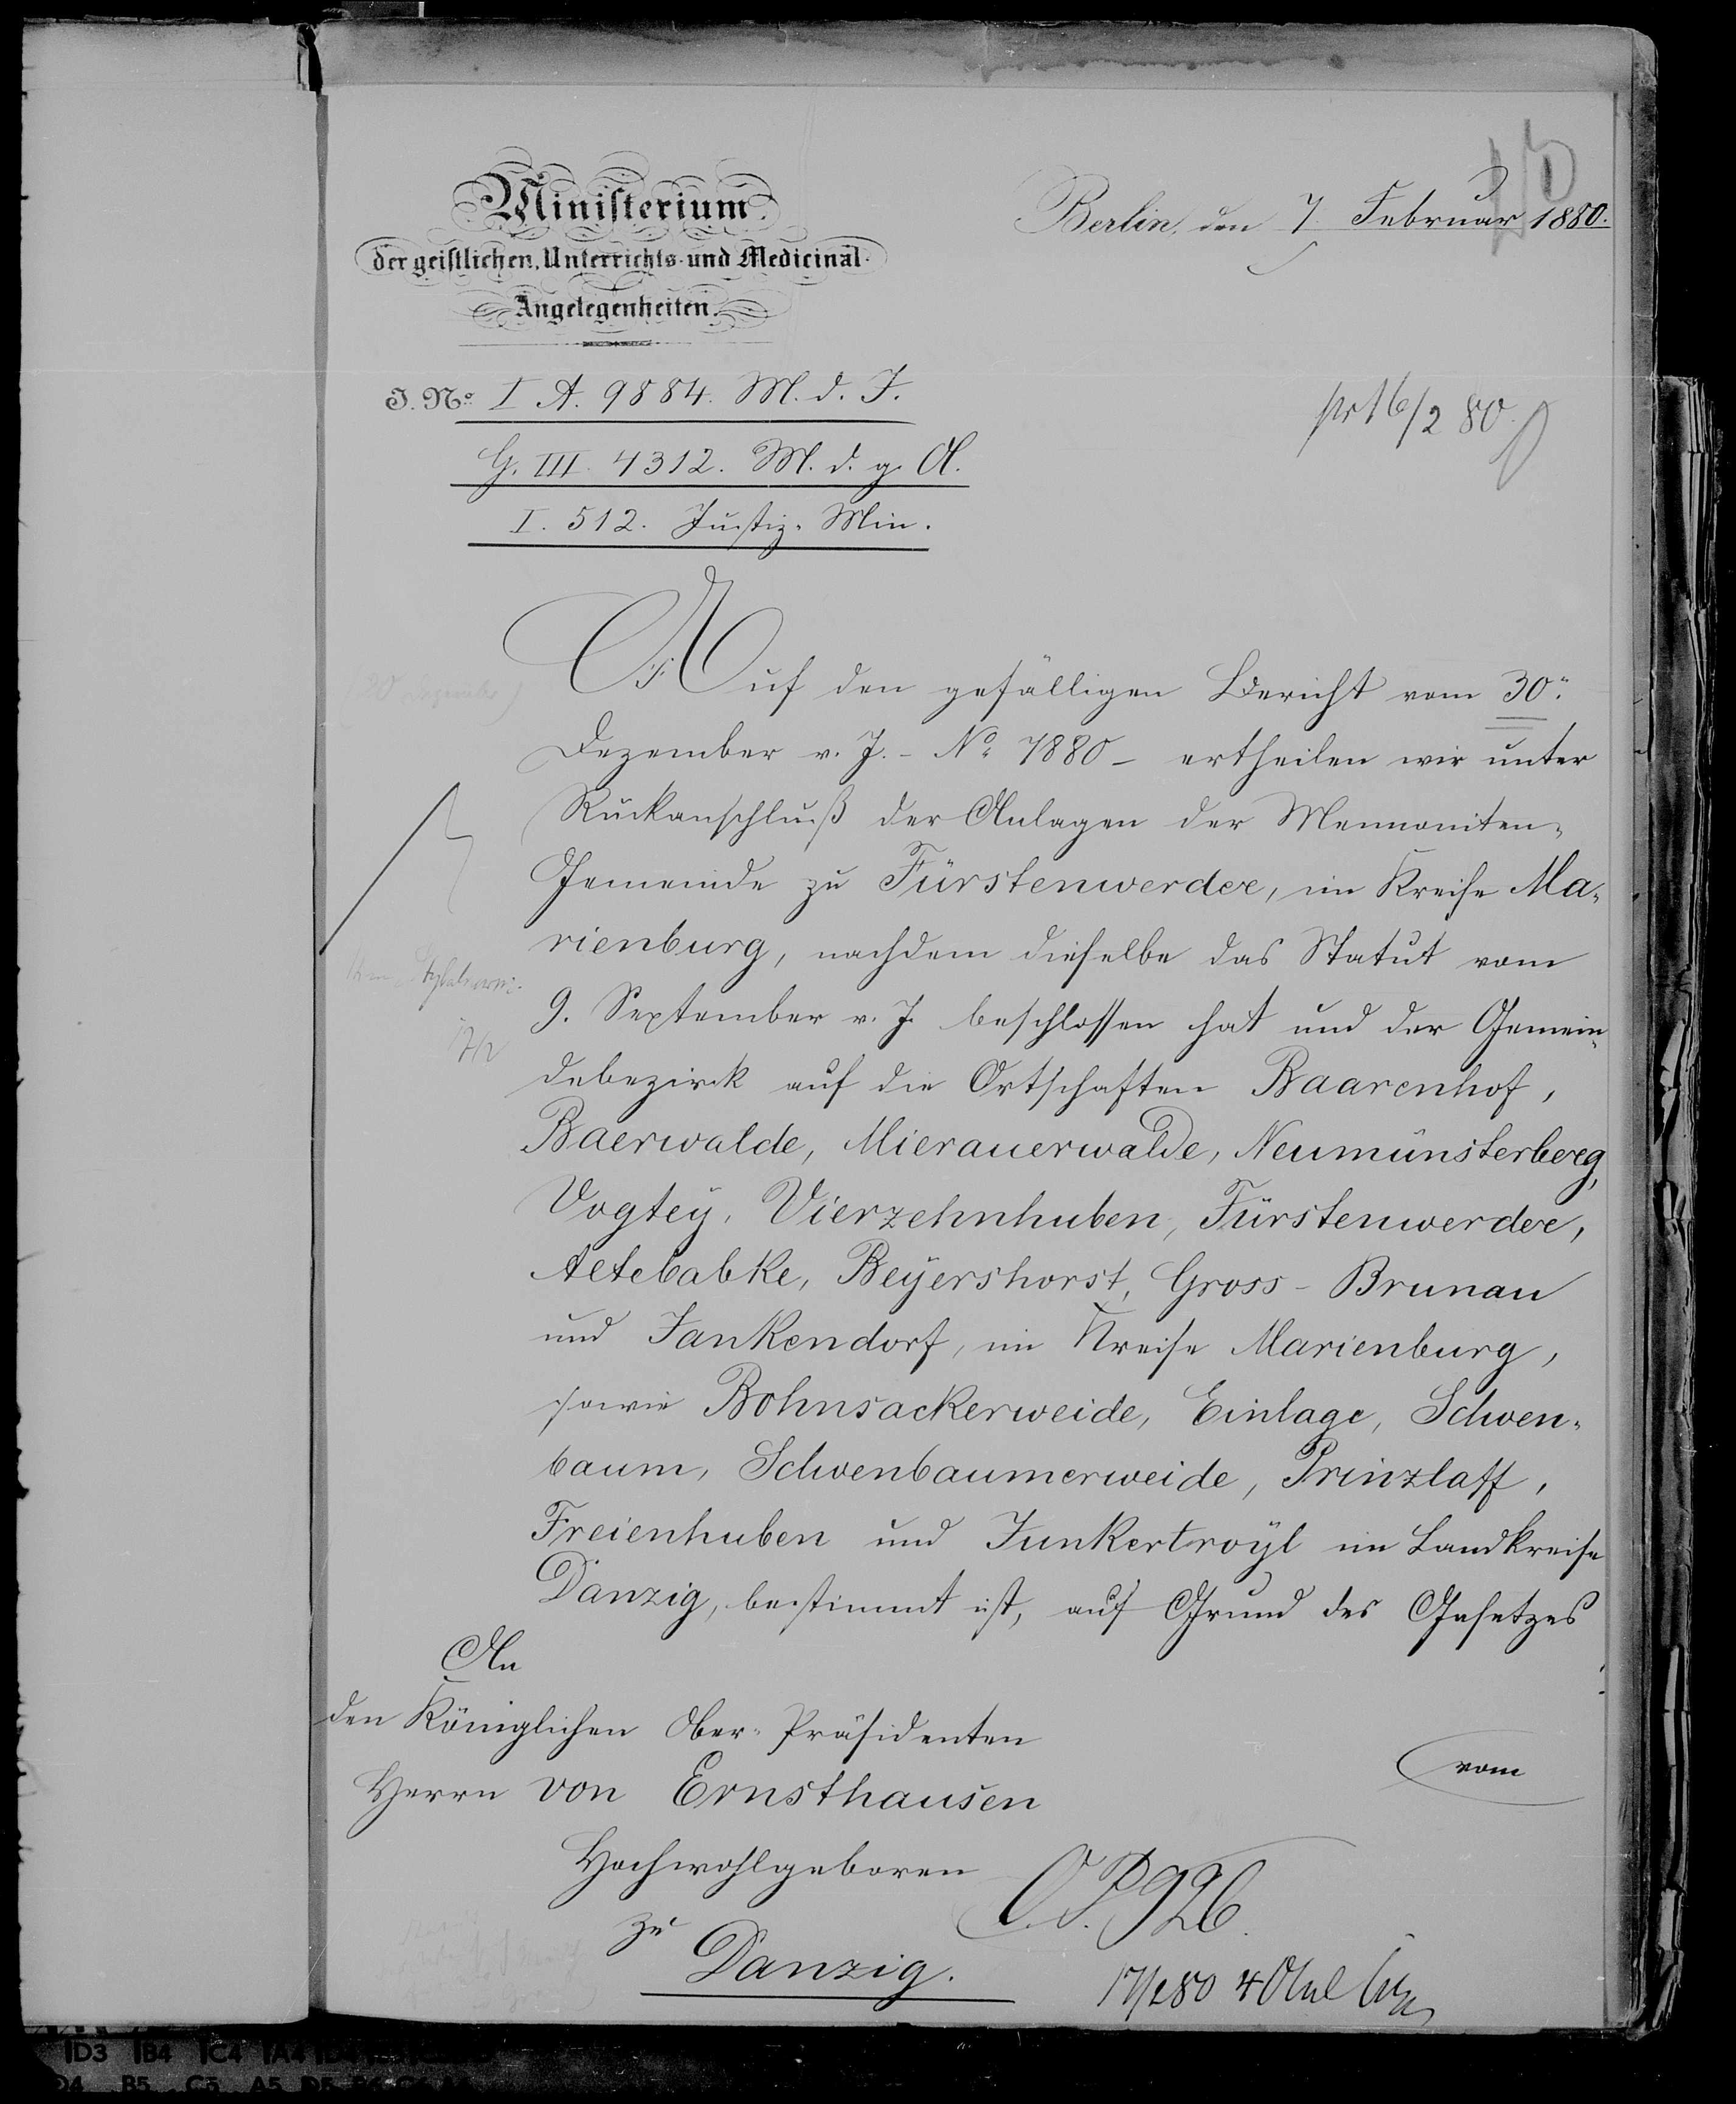 Berlin, den 7. Februar 1880.
Ministerium
der geistlichen, Unterrichts- und Medicinal-
Angelegenheiten.
J. No. I A. 9884. M. d. J.
G. III. 4312. M. d. g. A.
I. 512. Justiz-Min.
pr 16/2 80.
Auf den gefälligen Bericht vom 30.
Dezember v. J. - No. 7880 - ertheilen wir unter
Rückanschluß der Anlagen der Mennoniten-
Gemeinde zu Fürstenwerder, im Kreise Ma-
rienburg, nachdem dieselbe das Statut vom
9. September v. J. beschlossen hat und der Gemein-
debezirk auf die Ortschaften Baarenhof,
Baerwalde, Mierauerwalde, Neumünsterberg,
Vogtey, Vierzehnhuben, Fürstenwerder,
Altebabke, Beyershorst, Gross-Brunau
und Jankendorf, im Kreise Marienburg,
sowie Bohnsackerweide, Einlage, Schoen-
baum, Schoenbaumerweide, Prinzlaff,
Freienhuben und Junkertroyl im Landkreise
Danzig, bestimmt ist, auf Grund des Gesetzes
vom
An
den Königlichen Ober-Präsidenten
Herrn von Ernsthausen
Hochwohlgeboren
zu
Danzig.
O. P. 926.
17/2 80 4 Anl
D3 B4 C4 A4
D4 B5 C5 A5 D5